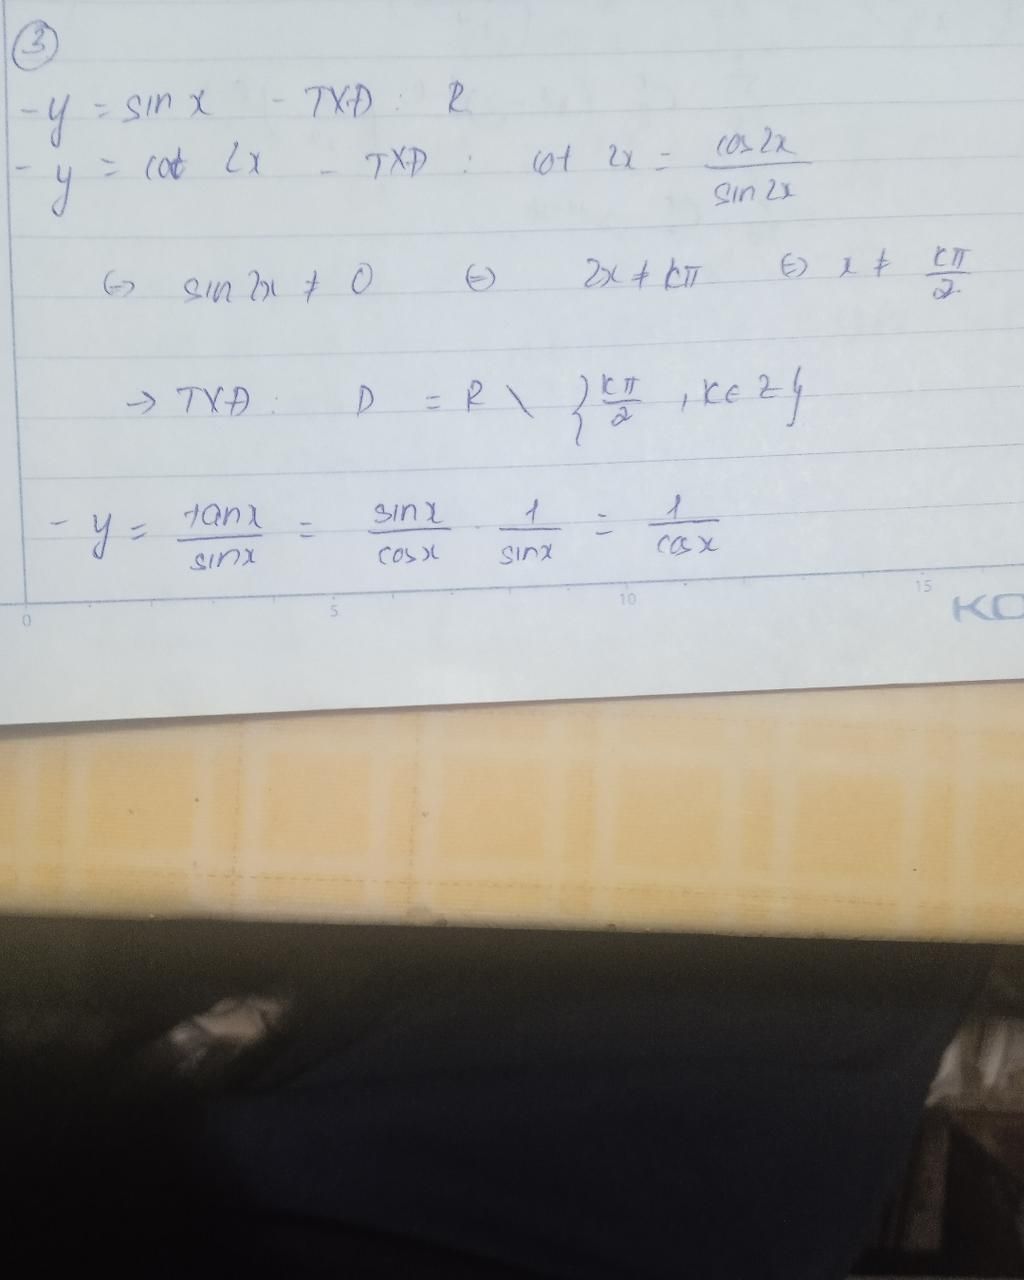 ③
- y = sin x - TXĐ : R
- y = cot 2x - TXĐ : cot 2x = cos 2x / sin 2x
⇔ sin 2x ≠ 0 ⇔ 2x ≠ kπ ⇔ x ≠ kπ/2
→ TXĐ : D = R \ {kπ/2 , k ∈ Z}
- y = tanx / sinx = sinx / cosx . 1 / sinx = 1 / cosx
0 5 10 15